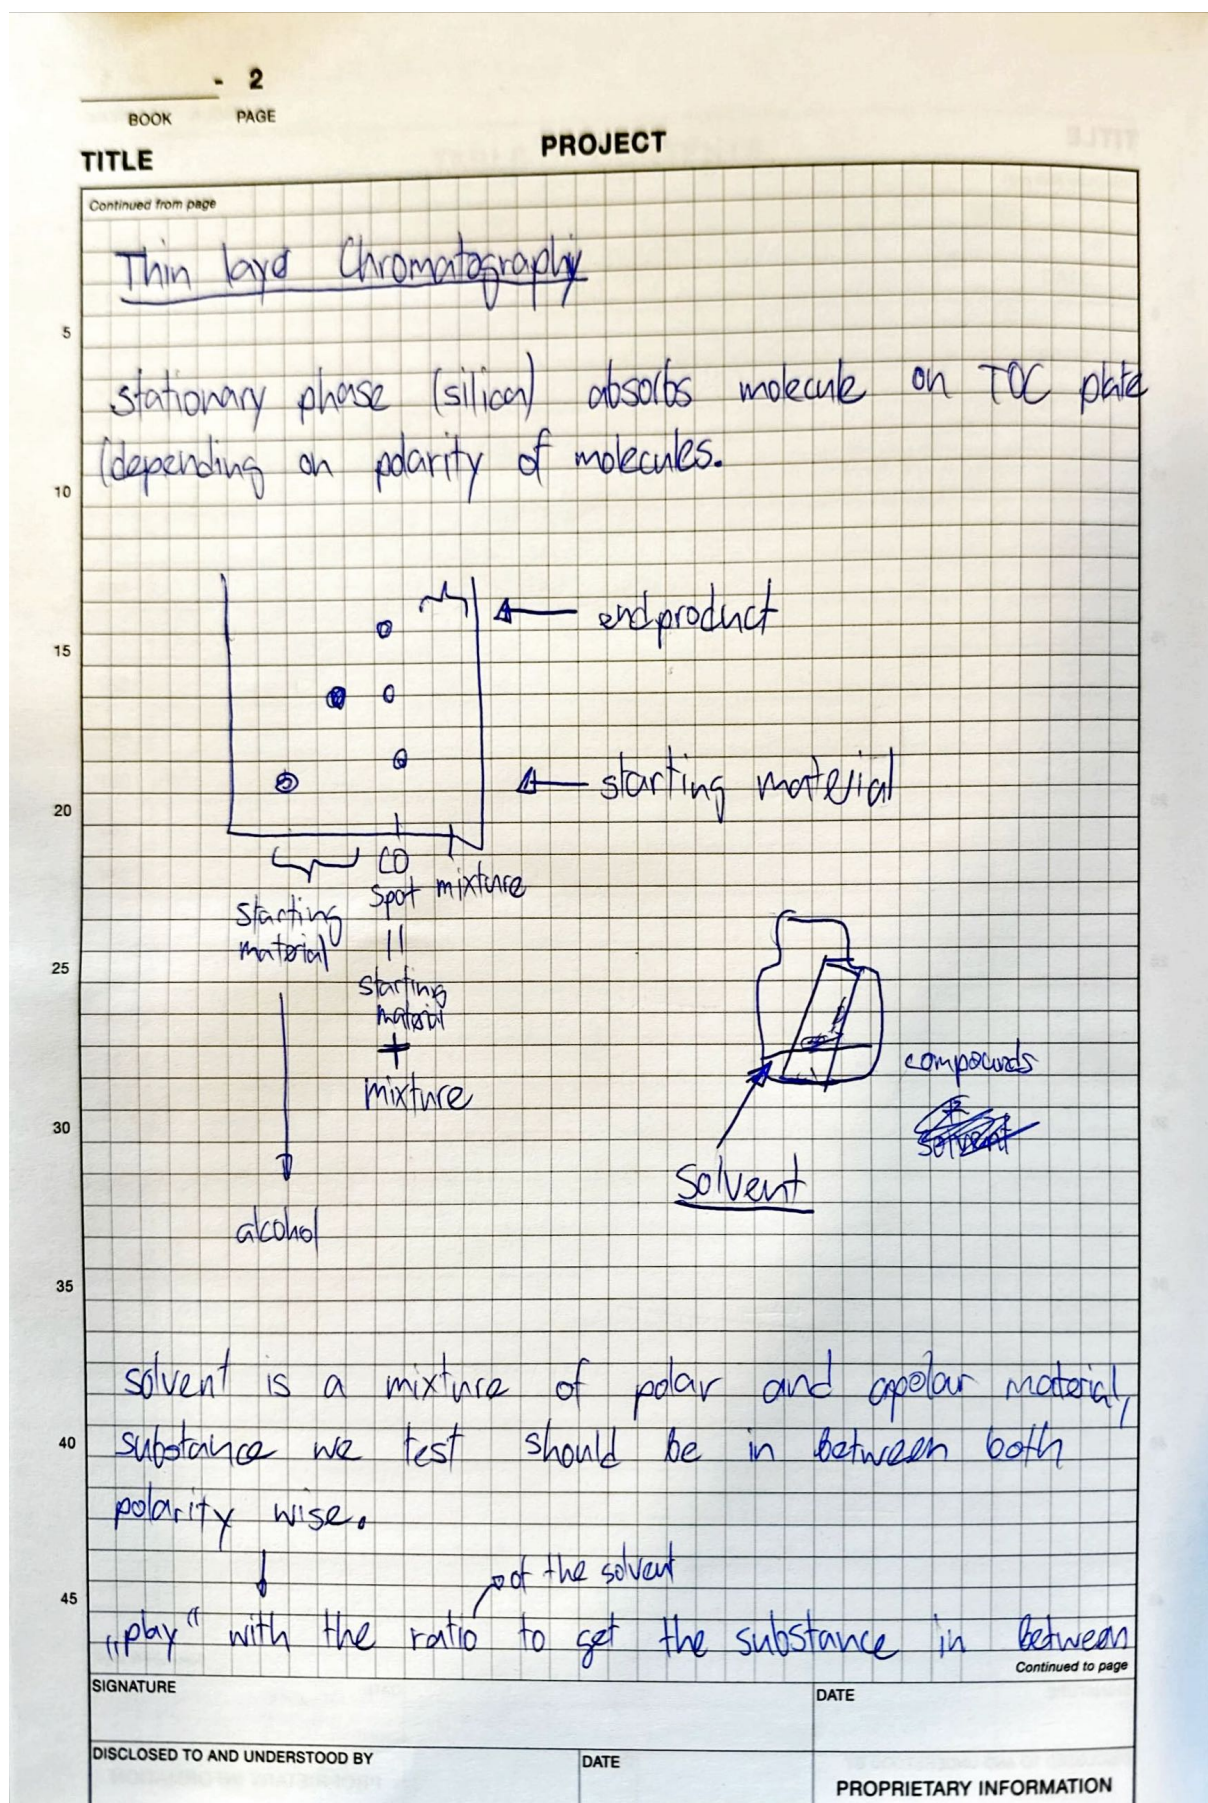 - 2
BOOK PAGE
TITLE PROJECT
Continued from page
Thin layer Chromatography
5
stationary phase (silica) absorbs molecule on TOC plate
(depending on polarity of molecules.
10
endproduct
15
starting material
20
CO
spot mixture
starting
material
||
25
starting
material
+
mixture
compounds
30
solvent
solvent
alcohol
35
solvent is a mixture of polar and apolar material,
40
substance we test should be in between both
polarity wise.
of the solvent
45
„play“ with the ratio to get the substance in between
Continued to page
SIGNATURE
DATE
DISCLOSED TO AND UNDERSTOOD BY
DATE
PROPRIETARY INFORMATION